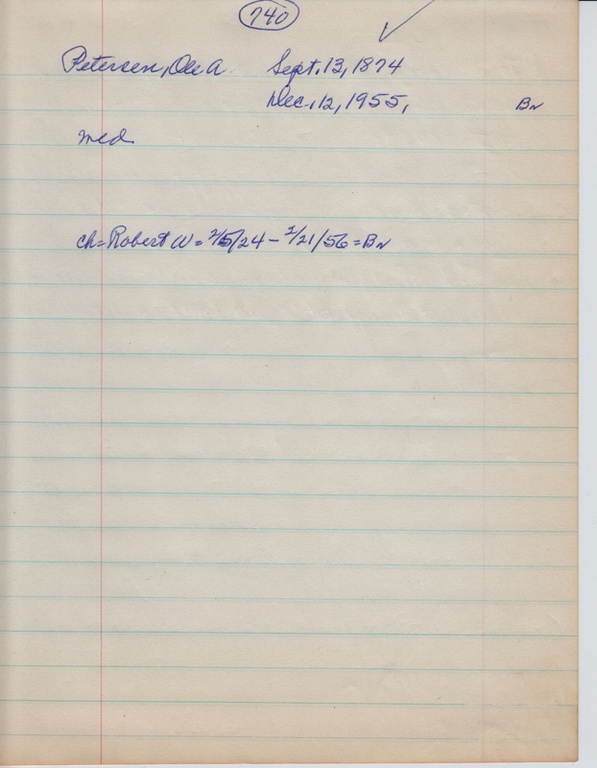 740
Petersen, Ole A. Sept. 13, 1874
Dec. 12, 1955, Bn
med
ch = Robert W = 2/5/24 - 2/21/56 = Bn